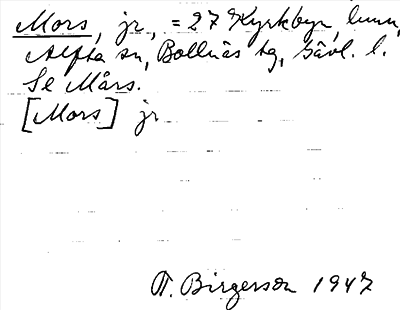 Mors, jr, = 27 Kyrkbyn, hmn,
Alfta sn, Bollnäs tg, Gävl. l.
Se Mårs.
[Mors] jr
T. Birgerson 1947